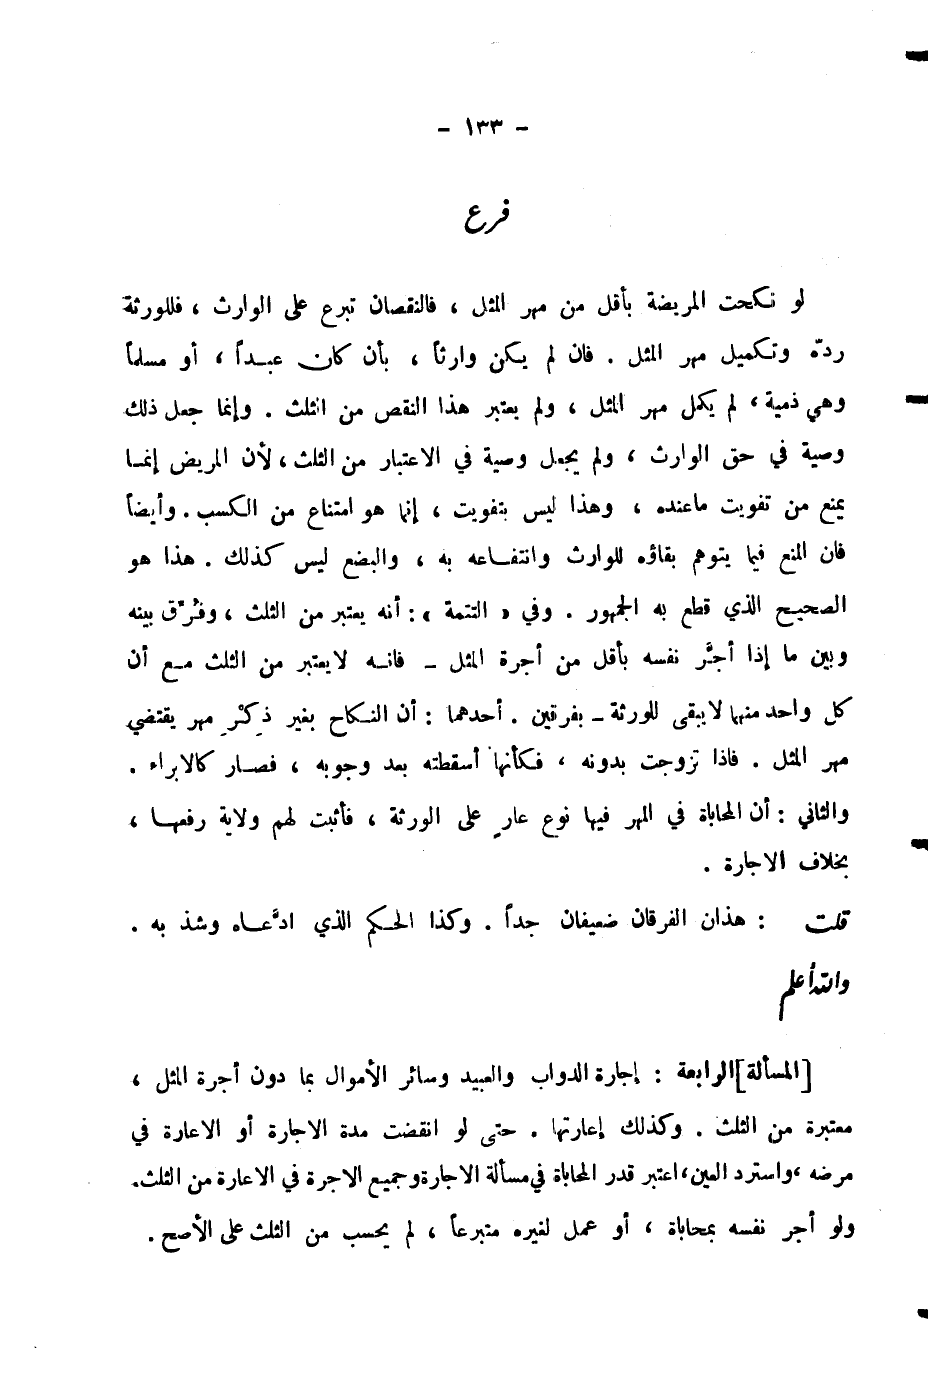 - ١٣٣ -
فرع
لو نكحت المريضة بأقل من مهر المثل ، فالنقصان تبرع على الوارث ، فللورثة
ردّه وتكميل مهر المثل . فان لم يكن وارثاً ، بأن كان عبداً ، أو مسلماً
وهي ذمية ، لم يكمل مهر المثل ، ولم يعتبر هذا النقص من الثلث . وإنما جعل ذلك
وصية في حق الوارث ، ولم يجعل وصية في الاعتبار من الثلث ، لأن المريض إنما
يمنع من تفويت ماعنده ، وهذا ليس بتفويت ، إنما هو امتناع من الكسب . وأيضاً
فان المنع فيما يتوهم بقاؤه للوارث وانتفاعه به ، والبضع ليس كذلك . هذا هو
الصحيح الذي قطع به الجمهور . وفي « التتمة » : أنه يعتبر من الثلث ، وفُرِّق بينه
وبين ما إذا أجَّر نفسه بأقل من أجرة المثل – فانه لايعتبر من الثلث مع أن
كل واحد منهما لايبقى للورثة – بفرقين . أحدهما : أن النكاح بغير ذِكْرِ مهر يقتضي
مهر المثل . فاذا تزوجت بدونه ، فكأنها أسقطته بعد وجوبه ، فصار كالابراء .
والثاني : أن المحاباة في المهر فيها نوع عارٍ على الورثة ، فأثبت لهم ولاية رفعها ،
بخلاف الاجارة .
قلت : هذان الفرقان ضعيفان جداً . وكذا الحكم الذي ادَّعاه وشذ به .
والله أعلم
[المسألة] الرابعة : إجارة الدواب والعبيد وسائر الأموال بما دون أجرة المثل ،
معتبرة من الثلث . وكذلك إعارتها . حتى لو انقضت مدة الاجارة أو الاعارة في
مرضه ، واسترد العين ، اعتبر قدر المحاباة في مسألة الاجارة وجميع الاجرة في الاعارة من الثلث .
ولو أجر نفسه بمحاباة ، أو عمل لغيره متبرعاً ، لم يحسب من الثلث على الأصح .